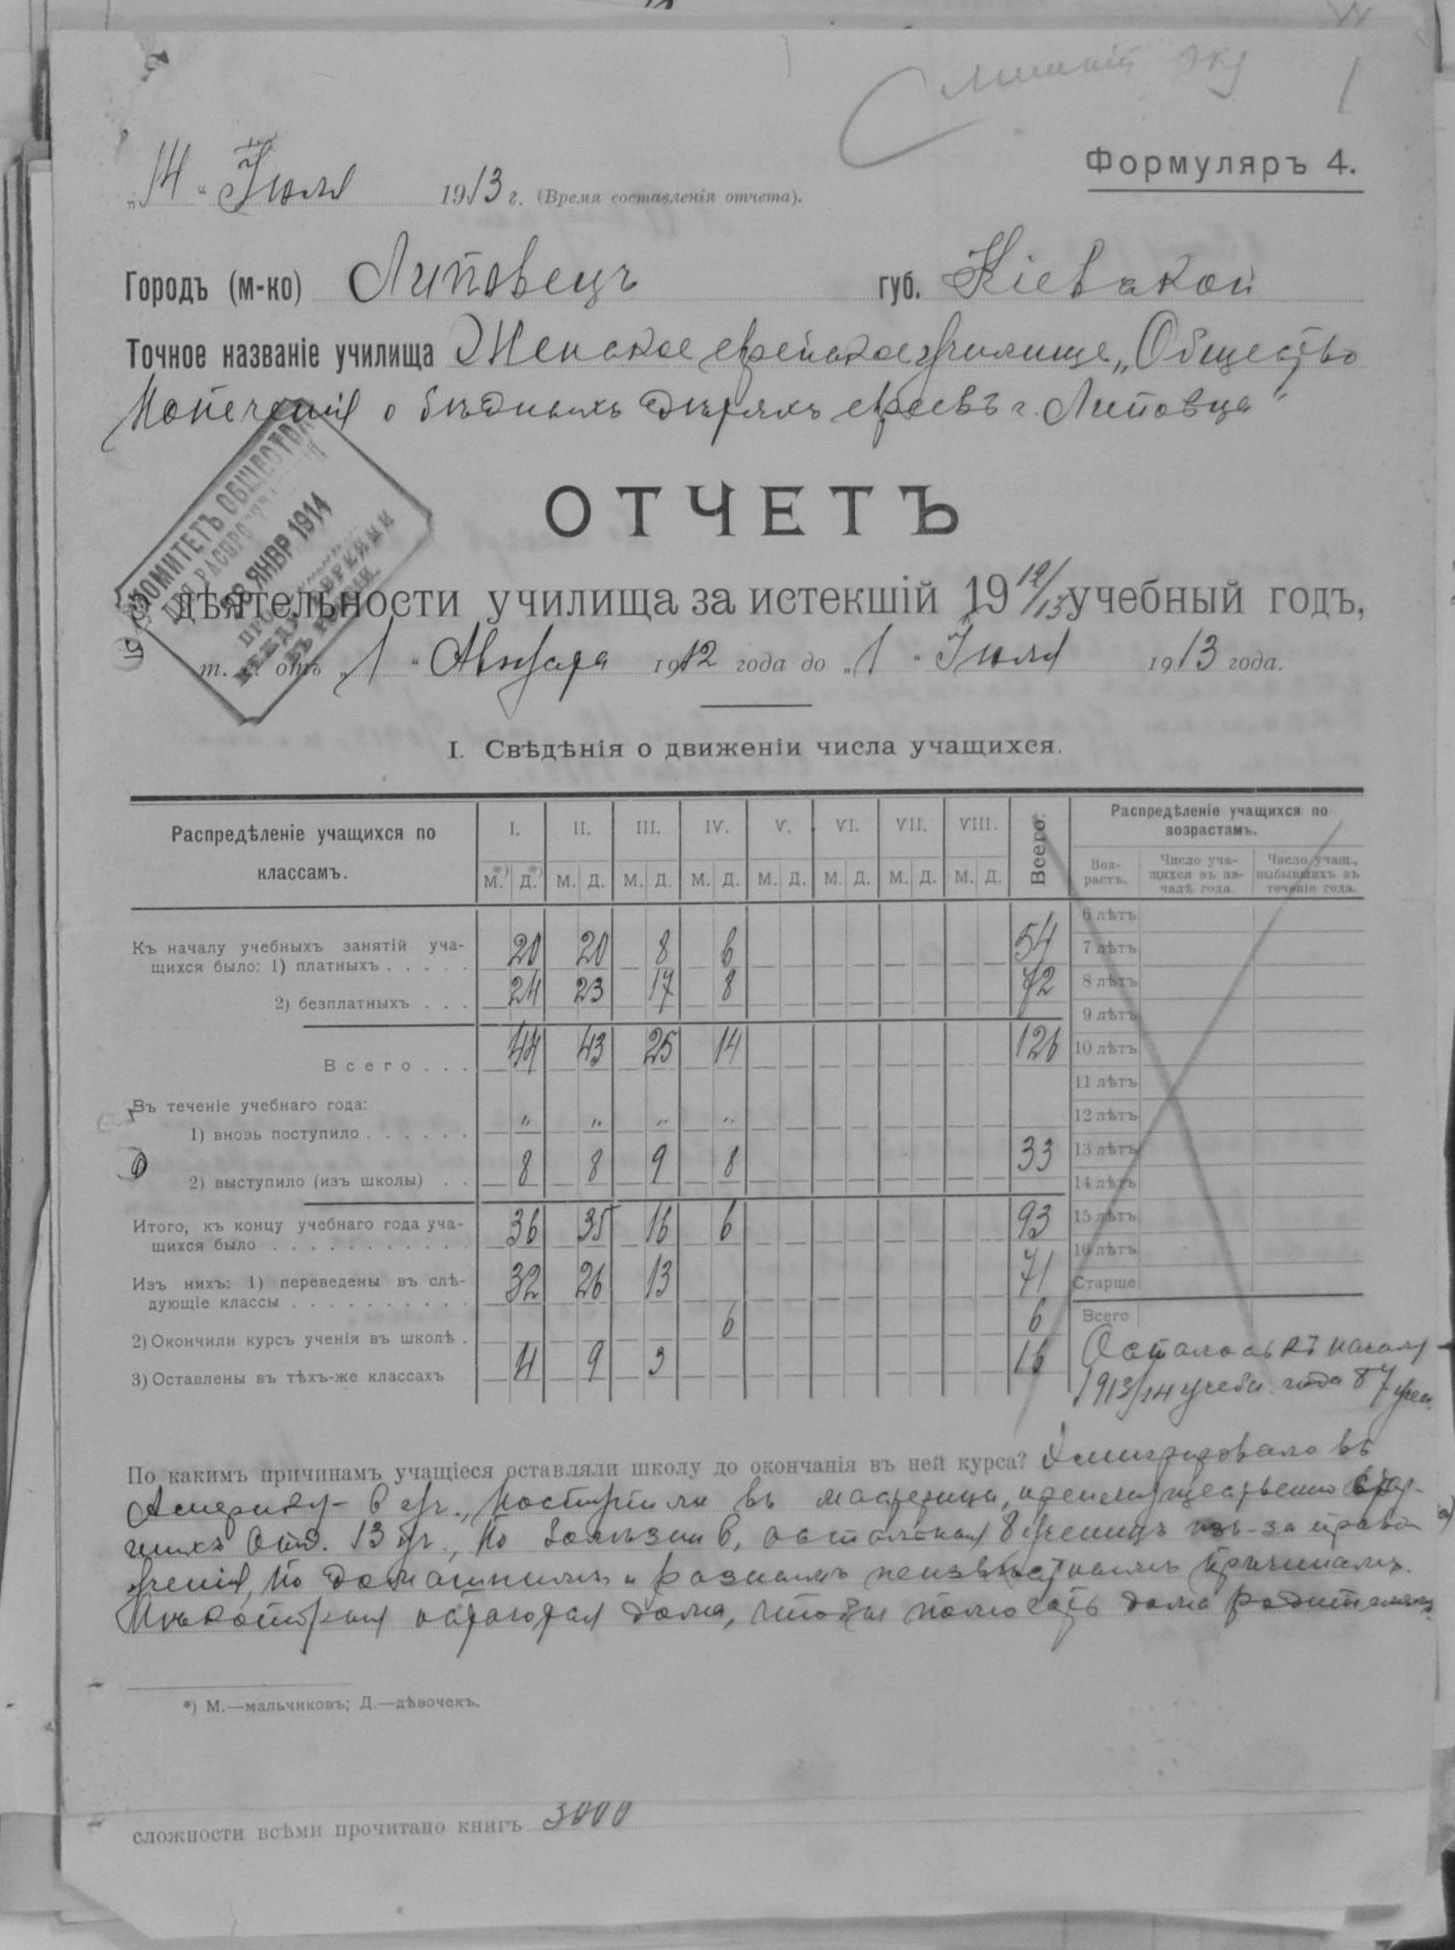 Формуляръ 4.
„14“ Іюля 1913 г. (Время составленія отчета).
Городъ (м-ко) Липовецъ губ. Кіевской
Точное названіе училища Женское еврейское училище „Общество
Попеченія о бѣдныхъ дѣтяхъ евреевъ г. Липовца“
ОТЧЕТЪ
КОМИТЕТЪ ОБЩЕСТВА
ДЛЯ РАСПРО
28 ЯНВР 1914
ПРО
МЕЖДУ ЕВРЕЯМИ
ВЪ РОССІИ.
дѣятельности училища за истекшій 1912/13 учебный годъ,
т. отъ „1“ Августа 1912 года до „1“ Іюля 1913 года.
I. Свѣдѣнія о движеніи числа учащихся.
Распредѣленіе учащихся по классамъ. I. II. III. IV. V. VI. VII. VIII. Всего. Распредѣленіе учащихся по возрастамъ.
М.*) Д.*) М. Д. М. Д. М. Д. М. Д. М. Д. М. Д. М. Д. Воз-растъ. Число уча-щихся въ на-чалѣ года. Число учащ., выбывшихъ въ теченіе года.
Къ началу учебныхъ занятій уча-
щихся было: 1) платныхъ . . . . . 20 20 8 6 54
2) безплатныхъ . . . 24 23 17 8 72
Всего . . . 44 43 25 14 126
Въ теченіе учебнаго года:
1) вновь поступило . . . . . . „ „ „ „
2) выступило (изъ школы) . . 8 8 9 8 33
Итого, къ концу учебнаго года уча-
щихся было . . . . . . . . . . . 36 35 16 6 93
Изъ нихъ: 1) переведены въ слѣ-
дующіе классы . . . . . . . . . . 32 26 13 71
2) Окончили курсъ ученія въ школѣ . 6 6
3) Оставлены въ тѣхъ-же классахъ 4 9 3 16
6 лѣтъ
7 лѣтъ
8 лѣтъ
9 лѣтъ
10 лѣтъ
11 лѣтъ
12 лѣтъ
13 лѣтъ
14 лѣтъ
15 лѣтъ
16 лѣтъ
Старше
Всего
Осталось къ началу
1913/14 учебн. года 87 учен.
По какимъ причинамъ учащіеся оставляли школу до окончанія въ ней курса? Эмигрировало въ
Америку - 6 уч., Поступили въ мастерицы, преимущественно стар-
шихъ отд. 13 уч., По болѣзни 6, остальныя 8 ученицъ изъ-за права
ученія, по домашнимъ и разнымъ неизвѣстнымъ причинамъ.
Нѣкоторыя остаются дома, чтобы помогать дома родителямъ.
*) М.—мальчиковъ; Д.—дѣвочекъ.
сложности всѣми прочитано книгъ 3000